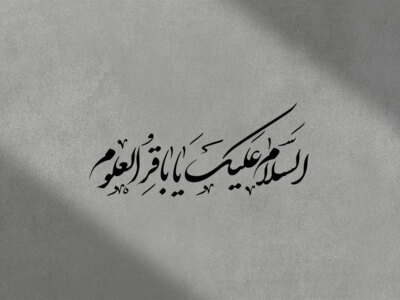 السَّلامُ عَلَیکَ یَا بَاقِرُ العُلوم